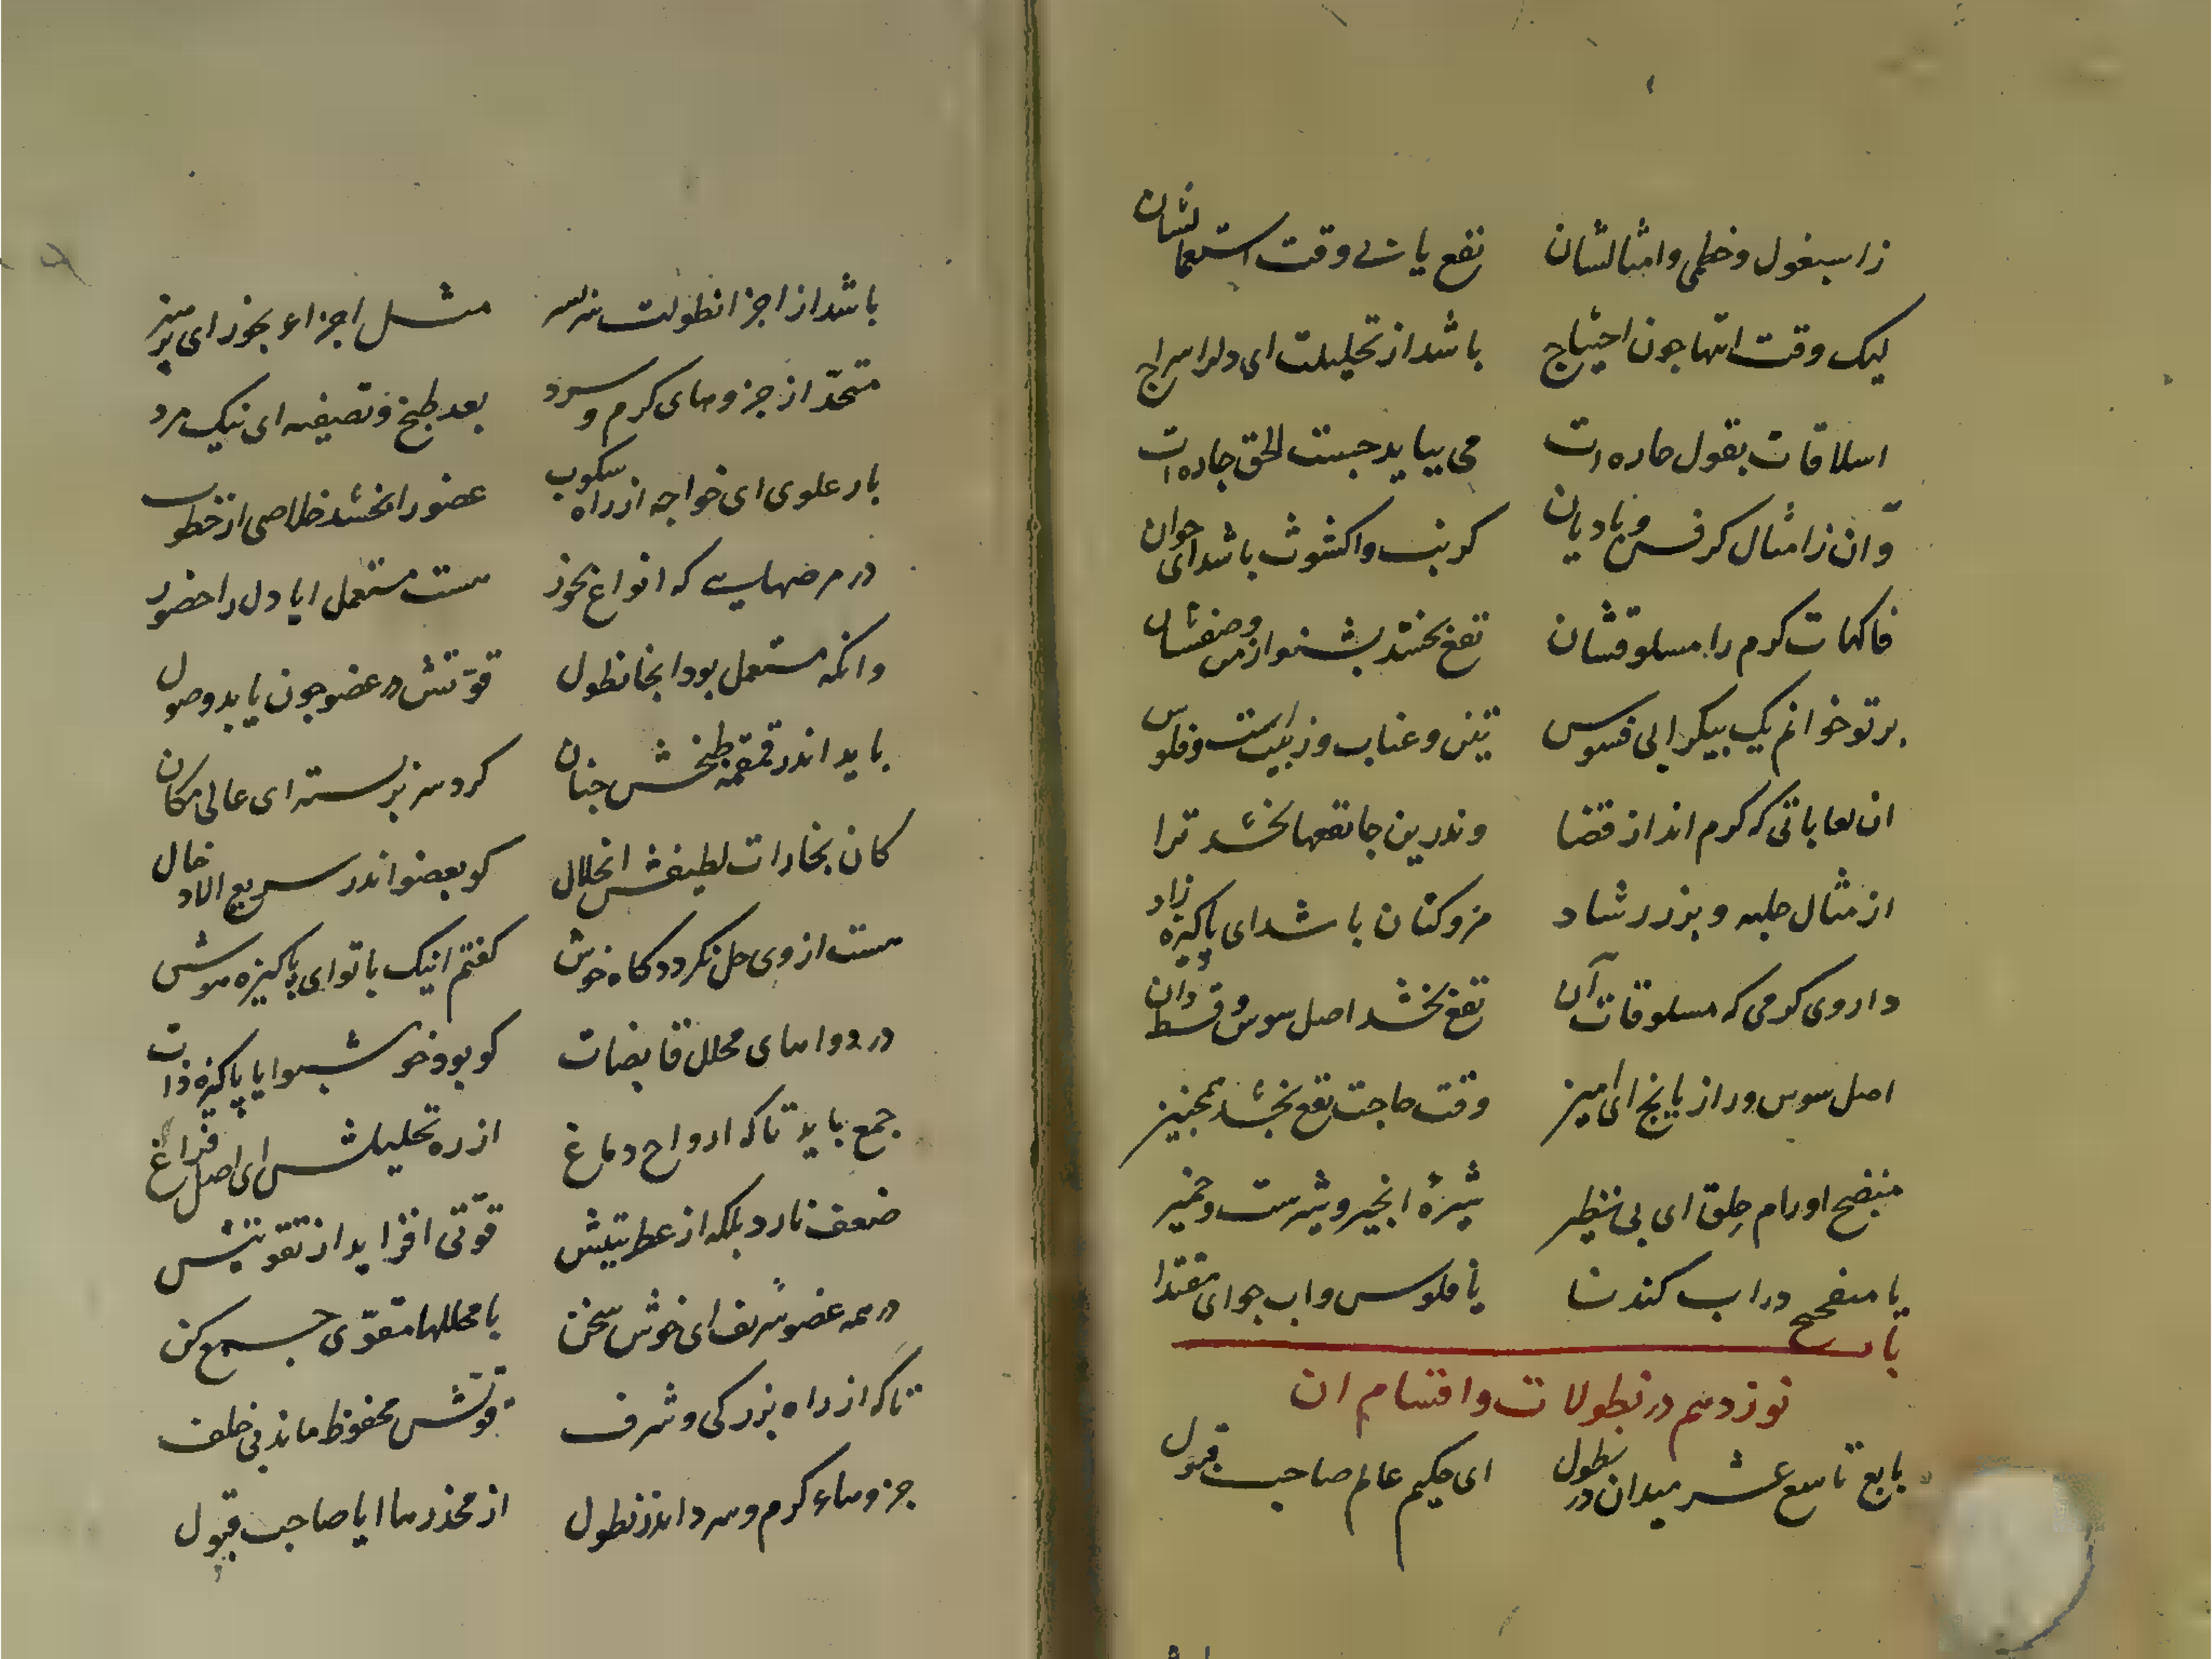 زاسبغول و خطمی و امثالشان نفع یابی وقت استعمالشان
لیک وقت انتها چون احتیاج باشد از تحلیلت ای دلرا سراج
اسلاقات بقول حاره ات می بباید جست الحق چاره ات
وآن زامثال کرفس و بادیان کرنب و اکشوث باشد ای جوان
فاکهات کرم را مسلوقشان نفع بخشد بشنو از من وصفشان
بر تو خوانم یک بیک را بی فسوس تین و عناب و زبیبست و فلوس
ان لعاباتی که کرم اند از قضا وندرین جا نفعها بخشد ترا
از مثال حلبه و بزر رشاد مرو کتان باشد ای پاکیزه زاد
داروی کرمی که مسلوقات آن نفع بخشد اصل سوس و قسط دان
اصل سوس و رازیانج ای امیز وقت حاجت نفع بخشد همچنیز
منضج اورام حلق ای بی نظیر شیرهٔ انجیر و شیرست و خمیر
یا مبفختج در اب کندنا یا فلوس و اب جو ای مقتدا
باب
نوزدهم در نطولات و اقسام ان
باب تاسع عشر میدان در نطول ای حکیم عالم صاحب قبول
باشد از اجزا نطولت سربسر مثل اجزاء بخور ای پر هنر
متخذ از جزوهای کرم و سرد بعد طبخ و تصفیه ای نیک مرد
بار علوی ای خواجه از راه سکوب عضو را بخشد خلاصی از خطوب
در مرضهایی که انواع بخور هست مستعمل ایا دل را حضور
وانکه مستعمل بود انجا نطول قوّتش در عضو چون یابد وصول
باید اندر قمقمه طبخش چنان کرد سر بربسته ای عالی مکان
کان بخارات لطیفش انحلال کو بعضو اندر سریع الادخال
هست از وی حل نکردد کاه خوش کفتم اینک با تو ای پاکیزه هوش
در دواهای محلل قابضات کو بود خوشبو ایا پاکیزه ذات
جمع باید تا که ارواح دماغ از ره تحلیلش ای اصل فراغ
ضعف نارد بلکه از عطریتش قوتی افزاید از تقویتش
در همه عضو شریف ای خوش سخن با محللها مقوّی جمع کن
تا که از راه بزرکی و شرف قوتش محفوظ ماند بی خلف
جزوهاء کرم و سرد اندر نطول از مخدرها ایا صاحب قبول